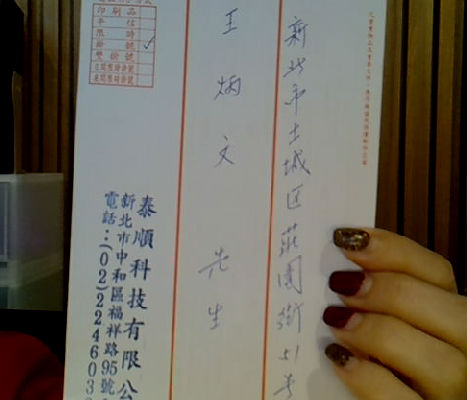 新北市土城區莊園街51号
王炳文 先生
印刷品
平信
限時
掛號
雙掛號
泰順科技有限公
新北市中和區福祥路95號
電話：(02)224603